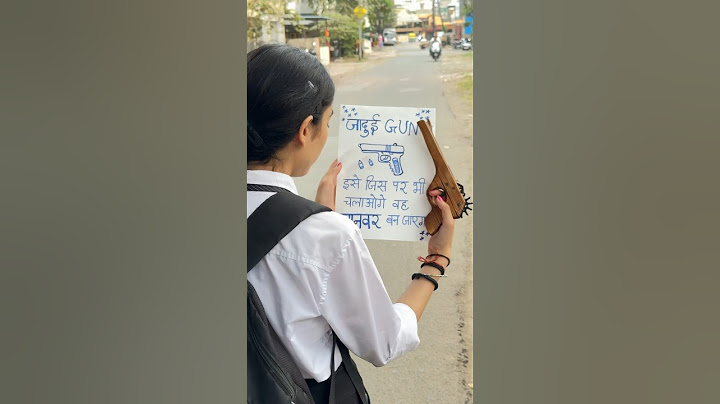 जादुई GUN
इसे जिस पर भी
चलाओगे वह
जानवर बन जाएगा